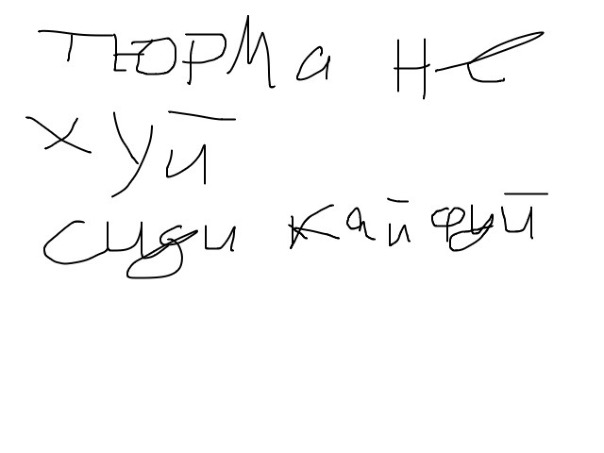 тюрма не
хуй
сиди кайфуй